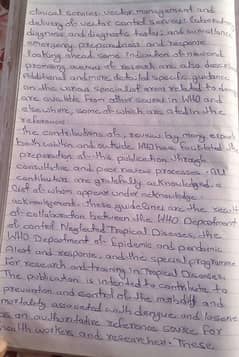 clinical services; vector management and
delivery of vector control services; laboratory
diagnosis and diagnostic tests; and surveillance,
emergency preparedness and response.
Looking ahead, some indication of new and
promising avenues of research are also described
Additional and more detailed specific guidance
on the various specialist areas related to dengue
are available from other sources in WHO and
elsewhere, some of which are cited in the
references.
The contributions of, review by many experts
both within and outside WHO have facilitated the
preparation of this publication through
consultative and peer review processes. All
contributors are gratefully acknowledged, a
list of whom appears under acknowledge
acknowledgement. These guidelines are the result
of collaboration between the WHO Department
of control Neglected Tropical Diseases, the
WHO Department of Epidemic and pandemic
Alert and response, and the special programme
for research and training in Tropical Diseases.
The publication is intended to contribute to
prevention and control of the morbidity and
mortality associated with dengue and to serve
as an authoritative reference source for
health workers and researchers. These